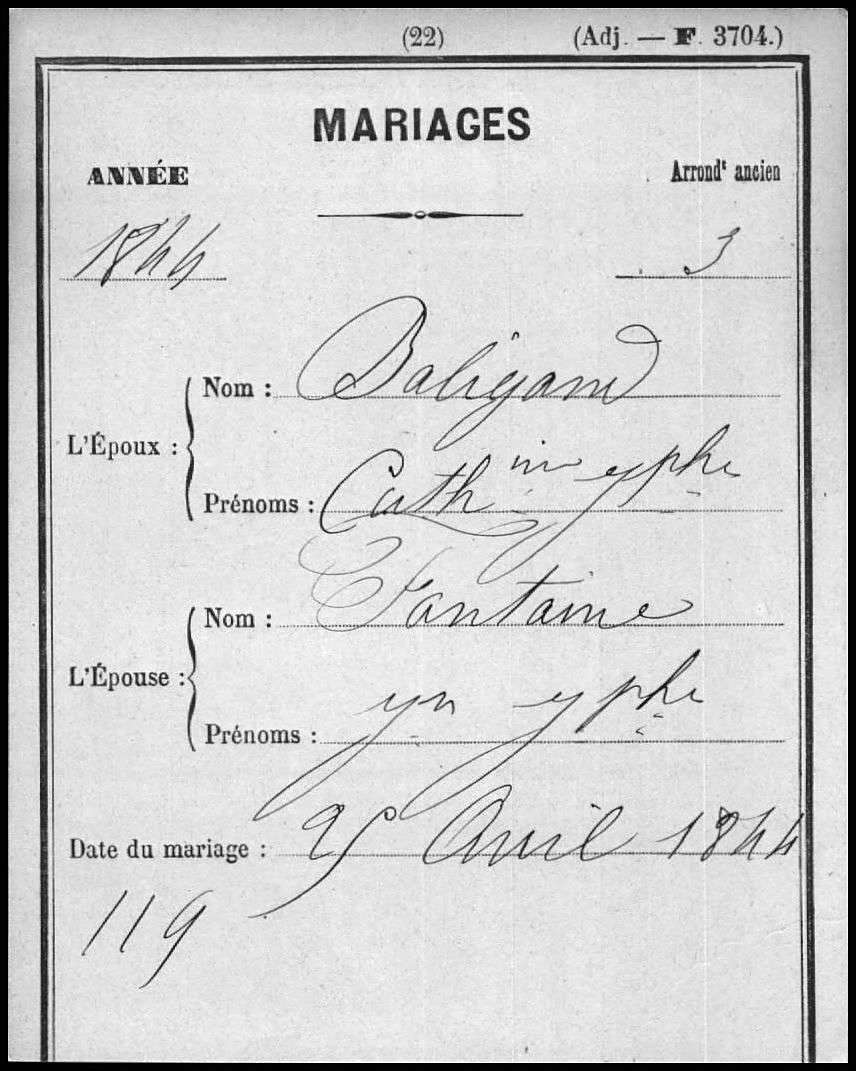 (22) (Adj. — F. 3704.)
MARIAGES
ANNÉE Arrondt ancien
1844 3
L'Époux :
Nom : Baligand
Prénoms : Cath
L'Épouse :
Nom : Fontaine
Prénoms :
Date du mariage : 25 Avril 1844
119